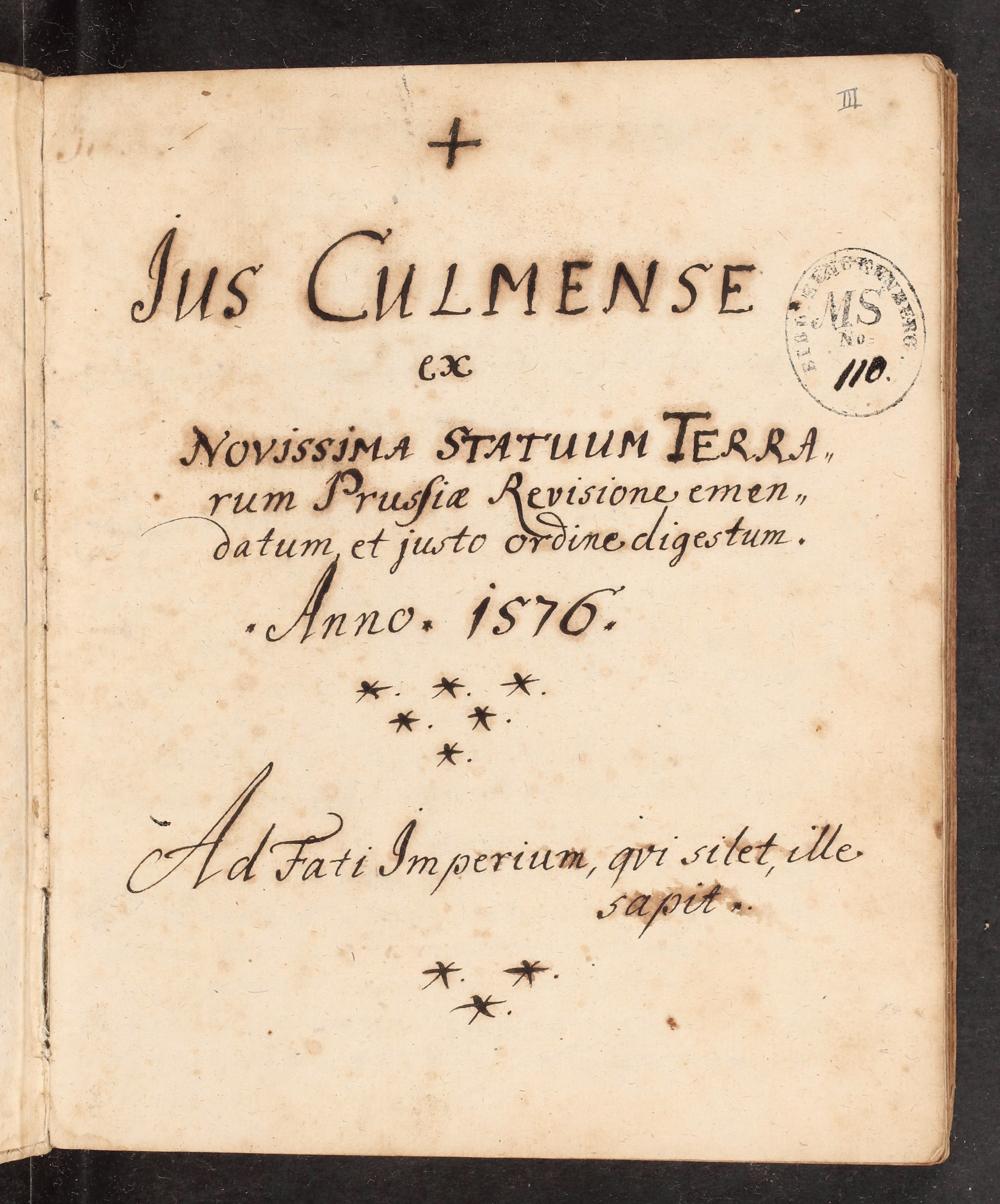 III
+
Jus Culmense
ex
Novissima Statuum Terra„
rum Prussiæ Revisione emen„
datum, et justo ordine digestum.
. Anno. 1576.
*. *. *.
*. *.
*.
Ad Fati Imperium, qvi silet, ille
sapit..
*. *.
*.
MS
No:
110.